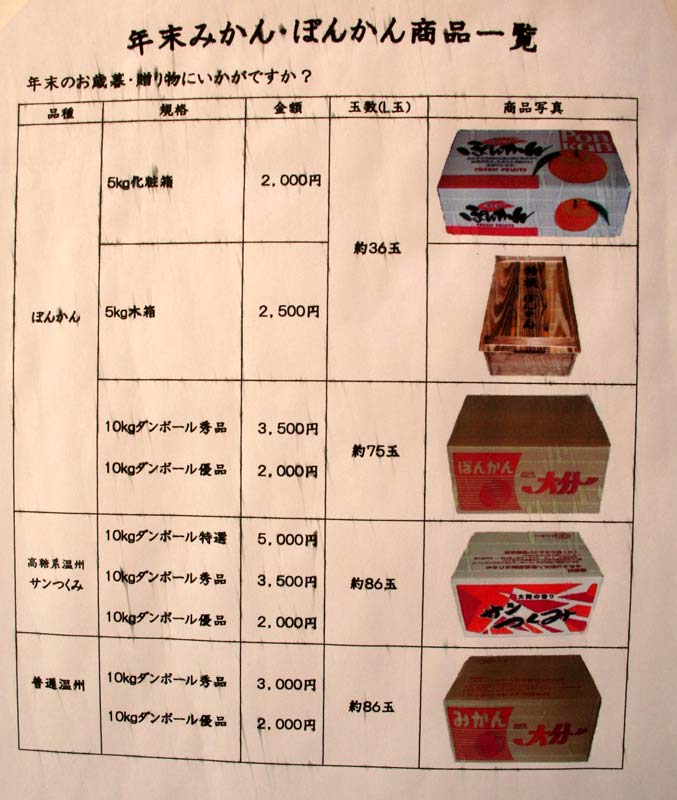 年末みかん・ぽんかん商品一覧
年末のお歳暮・贈り物にいかがですか？
品種 規格 金額 玉数(L玉) 商品写真
ぽんかん
5kg化粧箱 2,000円
約36玉
5kg木箱 2,500円
10kgダンボール秀品 3,500円
10kgダンボール優品 2,000円
約75玉
高糖系温州
サンつくみ
10kgダンボール特選 5,000円
10kgダンボール秀品 3,500円
10kgダンボール優品 2,000円
約86玉
普通温州
10kgダンボール秀品 3,000円
10kgダンボール優品 2,000円
約86玉
ぽんかん
Pon
kan
FRESH FRUITS
ぽんかん
FRESH FRUITS
ぽんかん
大分
太陽の香り
サン
つくみ
みかん
大分